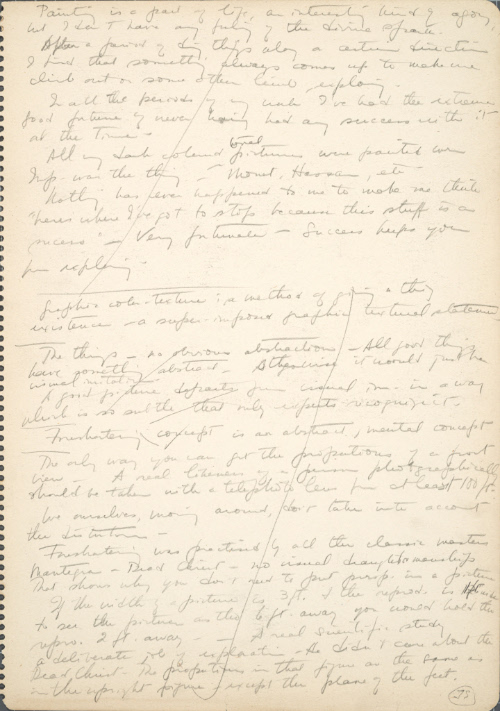 Painting is a part of life, an interesting kind of agony,
but I don't have any feeling of the divine spark.
After a period of doing things along a certain direction
I find that something always comes up to make me
climb out on some other limb, exploring.
In all the periods of my work I've had the extreme
good fortune of never having had any success with it
at the time.
All my dark colored tonal pictures were painted when
Imp. was the thing — Monet, Hassam, etc
Nothing has ever happened to me to make me think
"here's where I've got to stop because this stuff is a
success" — Very fortunate — Success keeps you
from exploring.
Graphic color-texture: a method of giving a thing
existence — a super-imposed graphic textural statement
The things — no obvious abstractions — All good things
have something abstract — Otherwise it would just be
visual imitation
A good picture departs from visual in a way
which is so subtle that only experts recognize it.
Foreshortening concept is an abstract, mental concept
The only way you can get the proportions of a front
view — A real likeness of a person photographically
should be taken with a telephoto lens from at least 100 ft.
We ourselves, moving around, don't take into account
the distortion —
Foreshortening was practised by all the classic masters
Mantegna — Dead Christ — no visual draughtsmanship
That shows why you don't need to put persp. in a picture
If the width of a picture is 3 ft. & the reprod. is
to see the picture as tho 6 ft. away you would hold the
repro. 2 ft. away — A real scientific study
a deliberate job of — He didn't care about the
Dead Christ. The proportions in that figure are the same as
in the upright figure except the plane of the feet.